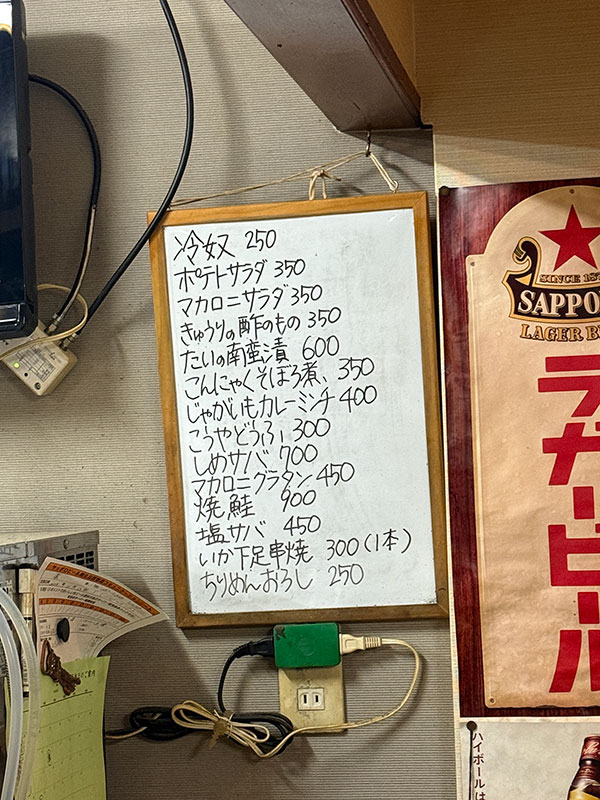 冷奴 250
ポテトサラダ 350
マカロニサラダ 350
きゅうりの酢のもの 350
たいの南蛮漬 600
こんにゃくそぼろ煮、350
じゃがいもカレーミンチ 400
こうやどうふ 300
しめサバ 700
マカロニグラタン 450
焼鮭 900
塩サバ 450
いか下足串焼 300(1本)
ちりめんおろし 250
SINCE 18
SAPPO
LAGER B
ラガービール
ハイボールは